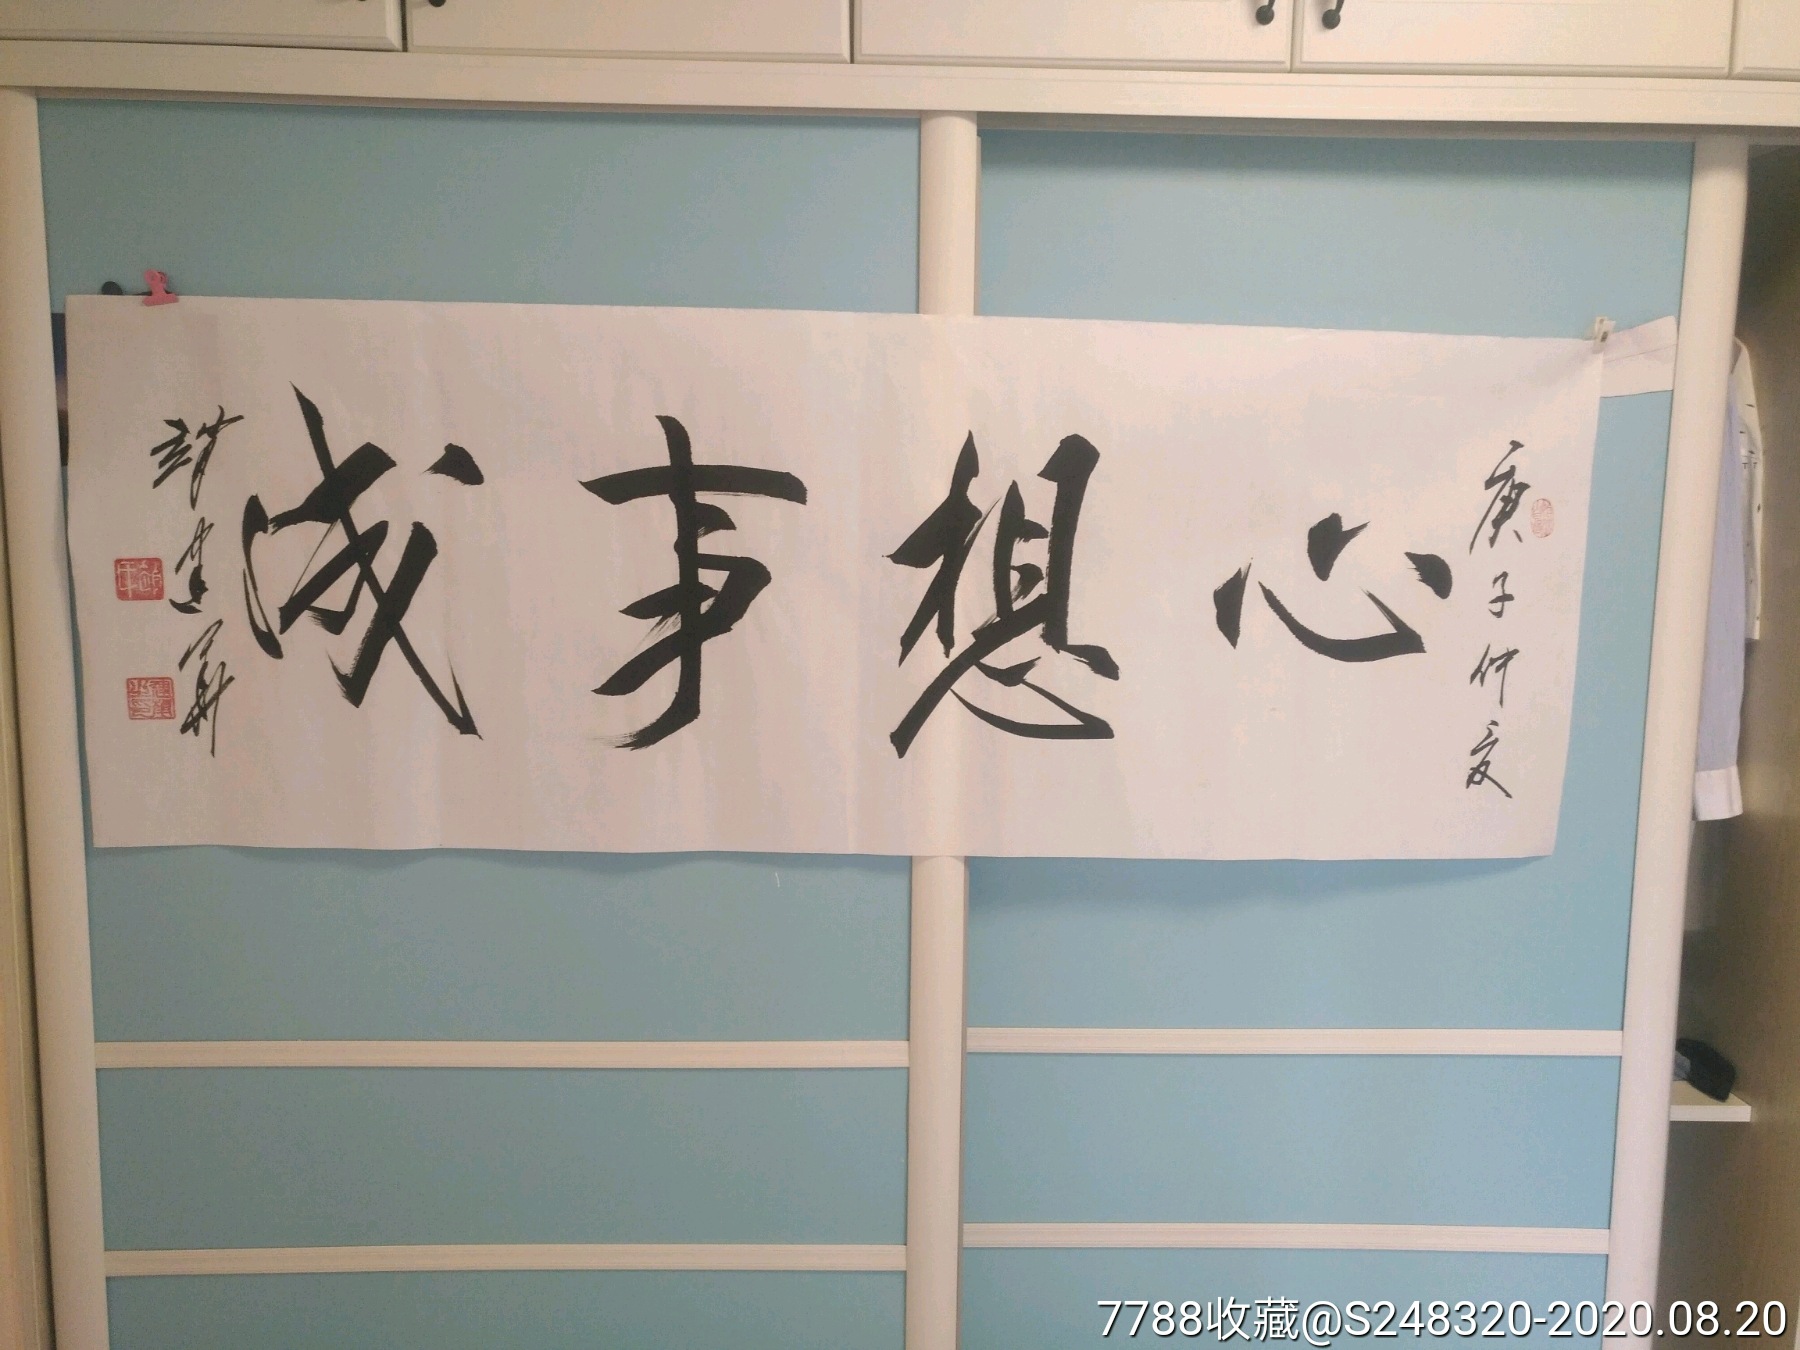 庚子仲夏
心想事成
靖建华
7788收藏@S248320-2020.08.20